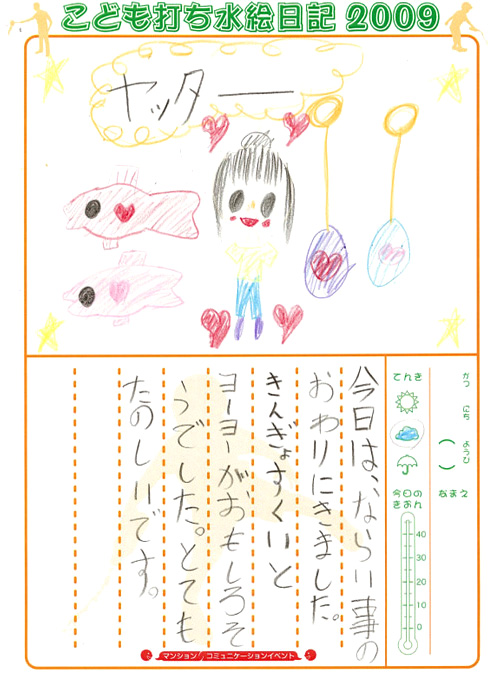 こども打ち水絵日記 2009
ヤッター
がつ にち ようび
( )
なまえ
てんき
今日の
きおん
40
30
20
10
0
今日は、ならい事の
おわりにきました。
きんぎょすくいと
ヨーヨーがおもしろそ
うでした。とても
たのしいです。
マンション コミュニケーションイベント